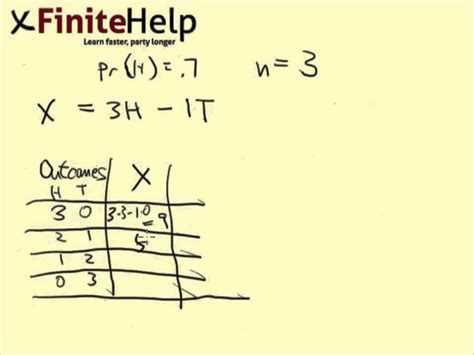 XFiniteHelp
Learn faster, party longer
Pr(H)=.7 n=3
X = 3H - 1T
Outcomes X
H T
3 0 3·3-1·0
= 9
2 1 5
1 2
0 3